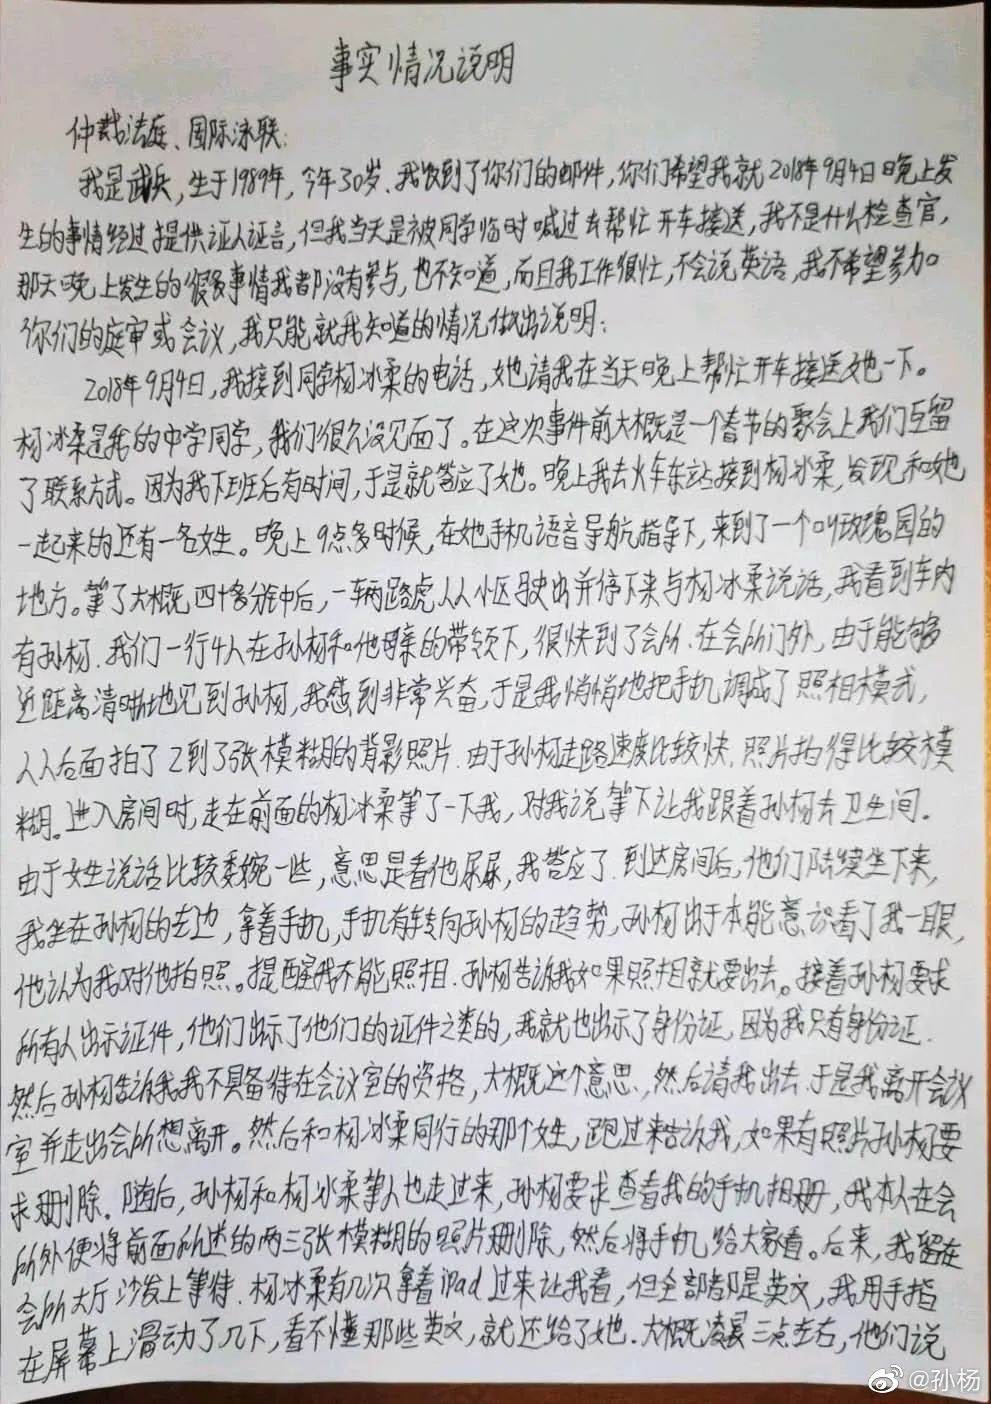 事实情况说明
仲裁法庭、国际泳联:
我是武兵,生于1989年,今年30岁.我收到了你们的邮件,你们希望我就2018年9月4日晚上发
生的事情经过提供证人证言,但我当天是被同学临时喊过去帮忙开车接送,我不是什么检查官,
那天晚上发生的很多事情我都没有参与,也不知道,而且我工作很忙,不会说英语,我不希望参加
你们的庭审或会议,我只能就我知道的情况做出说明:
2018年9月4日,我接到同学杨冰柔的电话,她请我在当天晚上帮忙开车接送她一下。
杨冰柔是我的中学同学,我们很久没见面了。在这次事件前大概是一个春节的聚会上我们互留
了联系方式。因为我下班后有时间,于是就答应了她。晚上我去火车东站接到杨冰柔,发现和她
一起来的还有一名女生。晚上9点多时候,在她手机语音导航指导下,来到了一个叫玫瑰园的
地方。等了大概四十多分钟后,一辆路虎从小区驶出并停下来与杨冰柔说话,我看到车内
有孙杨.我们一行4人在孙杨和他母亲的带领下,很快到了会所.在会所门外,由于能够
近距离清晰地见到孙杨,我感到非常兴奋,于是我悄悄地把手机调成了照相模式,
从后面拍了2到3张模糊的背影照片.由于孙杨走路速度比较快,照片拍得比较模
糊。进入房间时,走在前面的杨冰柔等了一下我,对我说等下让我跟着孙杨去卫生间.
由于女生说话比较委婉一些,意思是看他尿尿,我答应了.到达房间后,他们陆续坐下来,
我坐在孙杨的左边,拿着手机,手机有转向孙杨的趋势,孙杨出于本能意识看了我一眼,
他认为我对他拍照。提醒我不能照相.孙杨告诉我如果照相就要出去。接着孙杨要求
所有人出示证件,他们出示了他们的证件之类的,我就也出示了身份证,因为我只有身份证.
然后孙杨告诉我我不具备待在会议室的资格,大概这个意思,然后请我出去.于是我离开会议
室并走出会所想离开。然后和杨冰柔同行的那个女生,跑过来告诉我,如果有照片孙杨要
求删除.随后,孙杨和杨冰柔等人也走过来,孙杨要求查看我的手机相册,我本人在会
所外便将前面所述的两三张模糊的照片删除,然后将手机给大家看。后来,我留在
会所大厅沙发上等待.杨冰柔有几次拿着iPad过来让我看,但全部都是英文,我用手指
在屏幕上滑动了几下,看不懂那些英文,就还给了她.大概凌晨三点左右,他们说
@孙杨